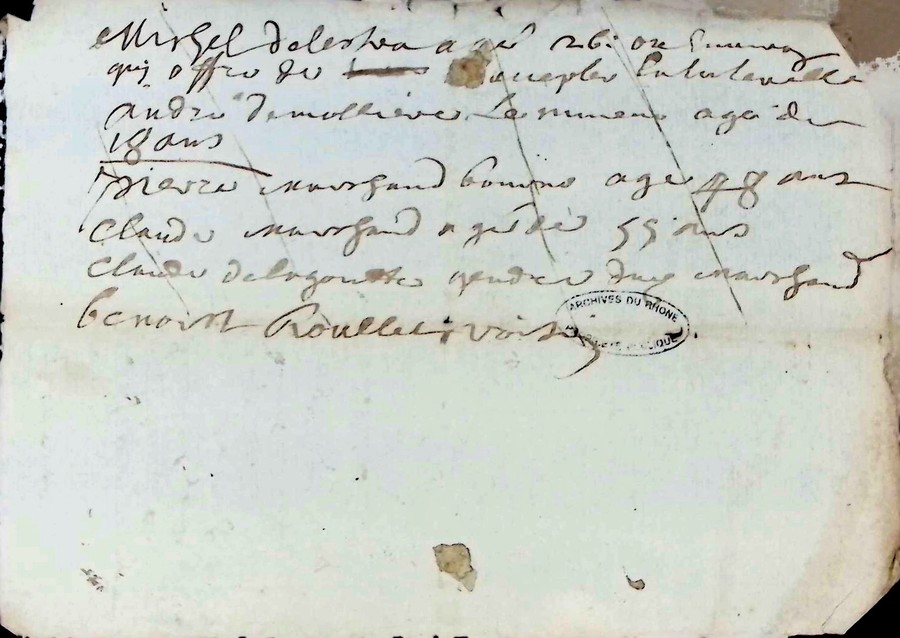 Michel Delestra agé 26: ou Environ
quj offre de accepter la tutelle
André Demollieres Le mineur agé de
18 ans
Pierre Marchand agé 48 ans
Claude Marchand agé de 55 ans
Claude Delagoutte gendre dud Marchand
benoist Roullet voisin
ARCHIVES DU RHONE